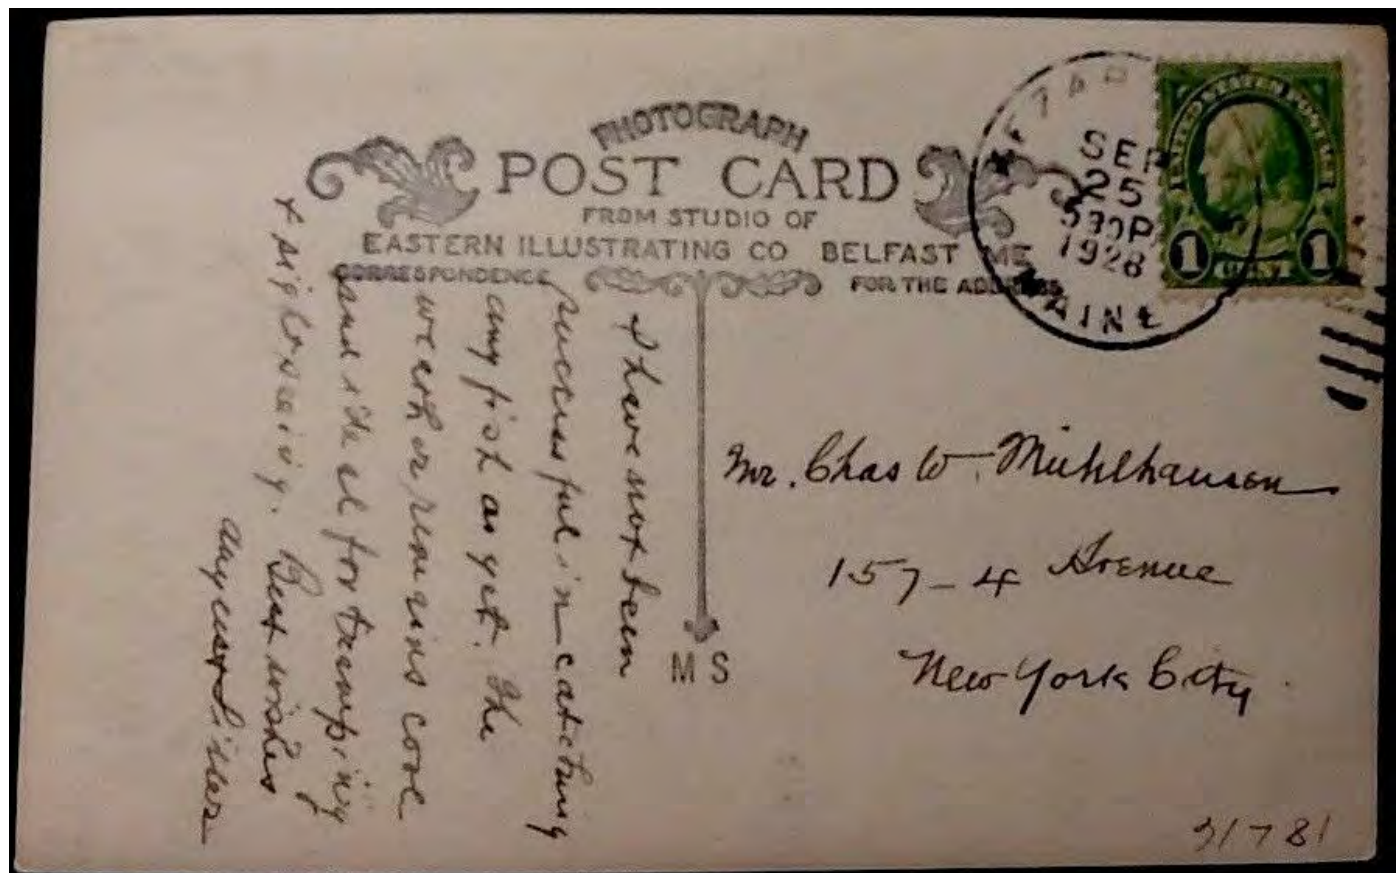 PHOTOGRAPH
POST CARD
FROM STUDIO OF
EASTERN ILLUSTRATING CO BELFAST ME
CORRESPONDENCE
FOR THE ADDRESS
SEP
25
530P
1928
MAINE
UNITED STATES POSTAGE
1 CENT 1
I have not been
successful in catching
any fish as yet. The
weather remains cool
and ideal for tramping
& sightseeing. Best wishes
August
M S
Mr. Chas W. Muhlhausen
157-4 Avenue
New York City
31781